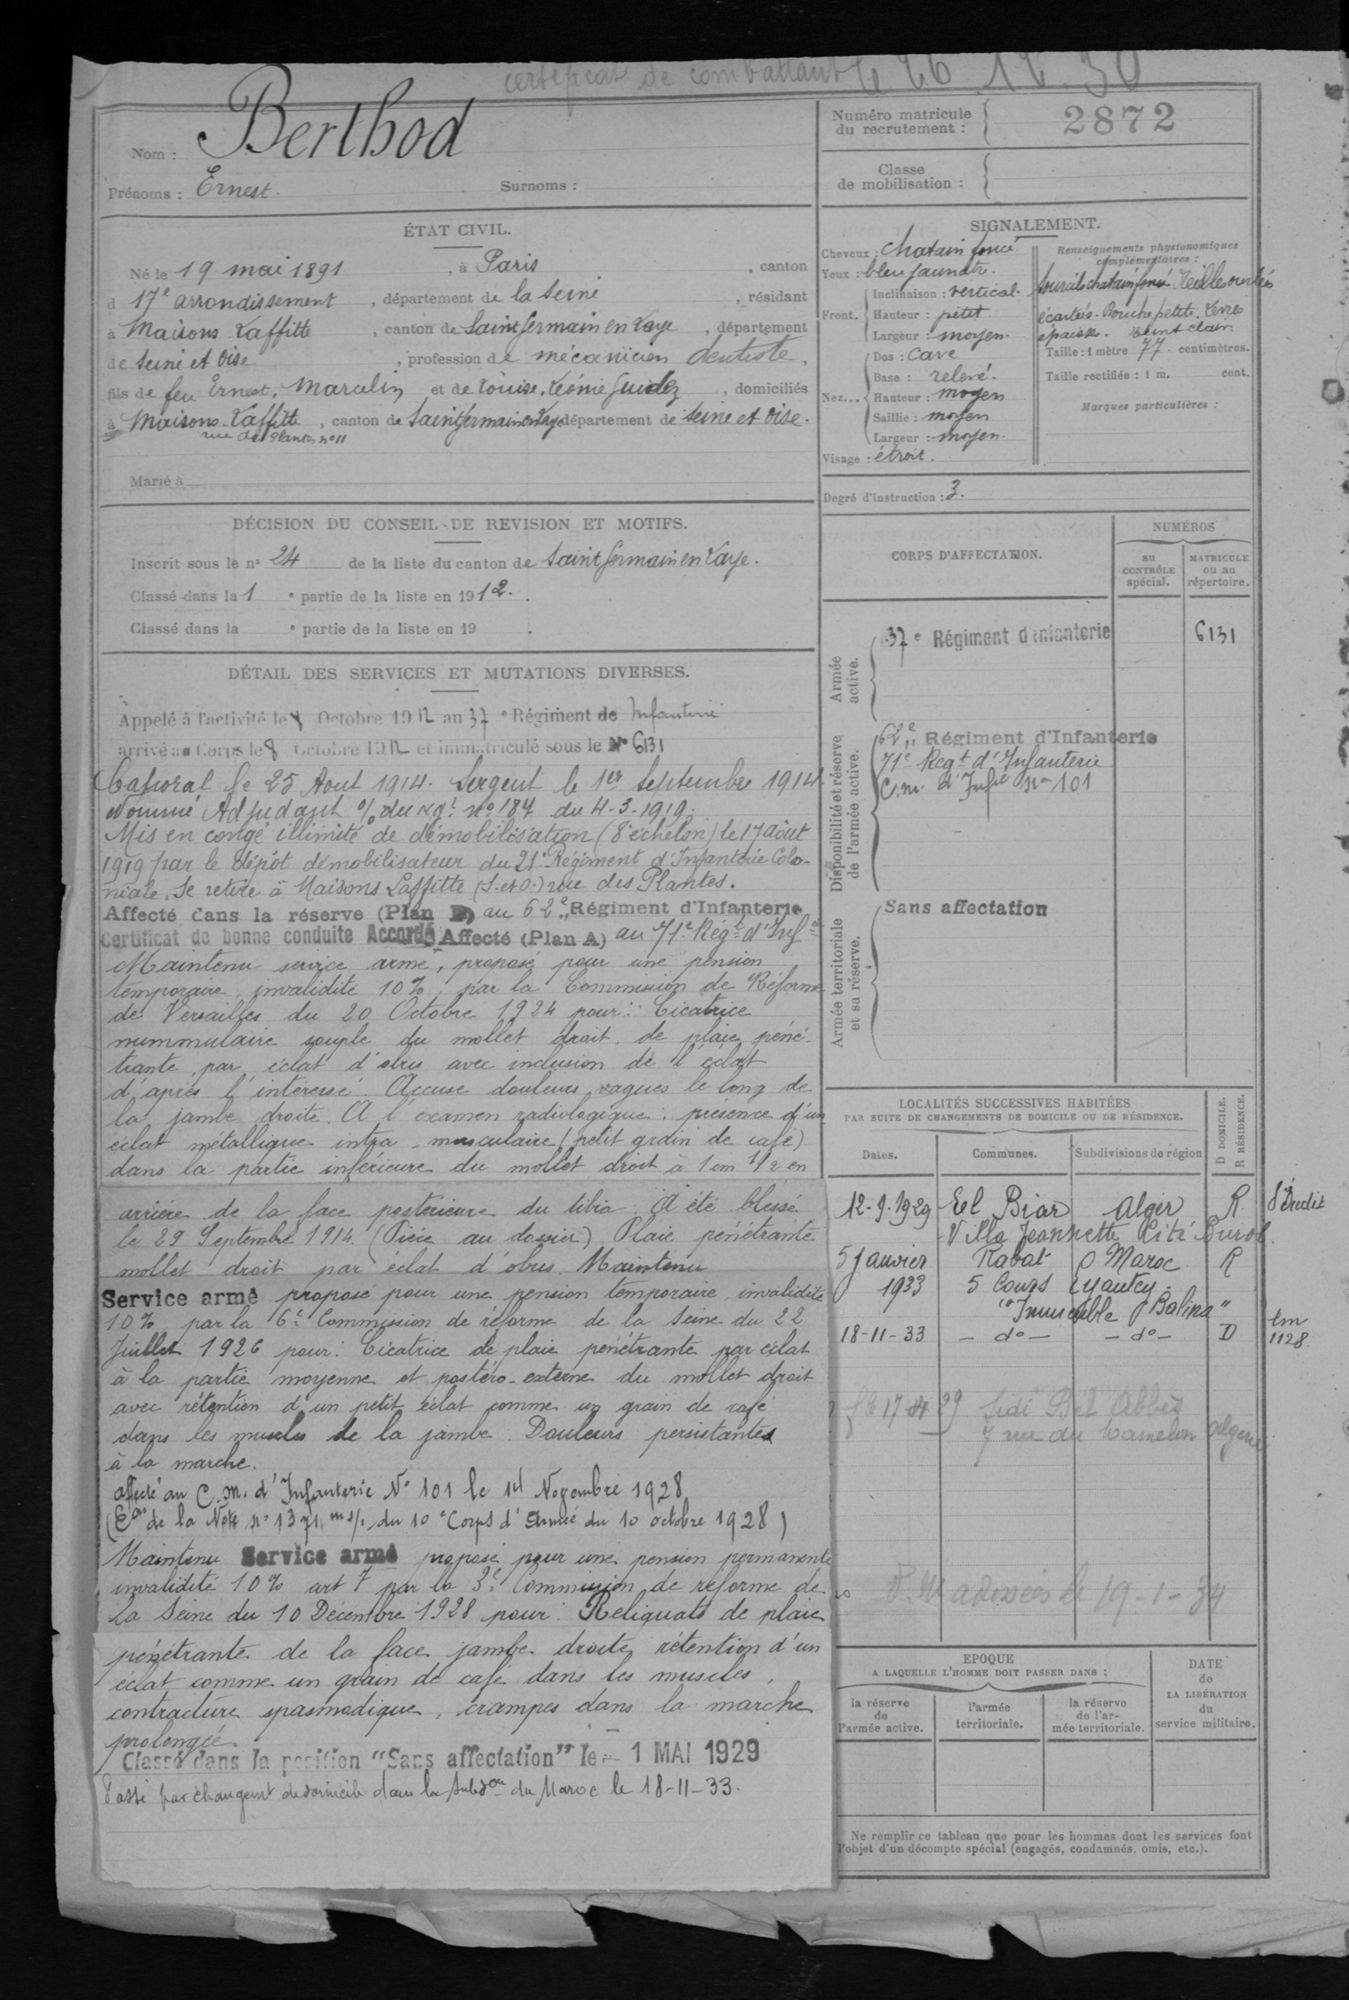 certificat de combattant le 26.12.30
Nom : Berthod
Prénoms : Ernest. Surnoms :
Numéro matricule
du recrutement : 2872
Classe
de mobilisation :
ÉTAT CIVIL.
Né le 19 mai 1891, à Paris, canton
d 17e arrondissement, département de la Seine, résidant
à Maisons Laffitte, canton de Saint Germain en Laye, département
de Seine et Oise, profession de mécanicien dentiste,
fils de feu Ernest, Marcelin et de Louise, Léonie Guidez, domiciliés
à Maisons Laffitte, canton de Saint Germain en Laye département de Seine et Oise.
rue des Plantes no 11
Marié à
SIGNALEMENT.
Cheveux : chatain foncé
Yeux : bleu jaunatr.
Front. Inclinaison : vertical.
Hauteur : petit
Largeur : moyen.
Nez... Dos : Cave
Base : relevé.
Hauteur : moyen
Saillie : moyen
Largeur : moyen.
Visage : étroit.
Renseignements physionomiques
complémentaires :
Sourcils chatain foncé
écartés. Bouche petite. Levres
épaisses. teint clair
Taille : 1 mètre 77 centimètres.
Taille rectifiée : 1 m. cent.
Marques particulières :
Degré d'instruction : 3.
DÉCISION DU CONSEIL DE REVISION ET MOTIFS.
Inscrit sous le no 24 de la liste du canton de Saint Germain en Laye.
Classé dans la 1 e partie de la liste en 1912.
Classé dans la e partie de la liste en 19 .
DÉTAIL DES SERVICES ET MUTATIONS DIVERSES.
Appelé à l'activité le 8 Octobre 1912 au 37 e Régiment de Infanterie
arrivé au Corps le 8 Octobre 1912 et immatriculé sous le No 6131
Caporal le 25 Aout 1914. Sergent le 1er Septembre 1914.
Nommé Adjudant o/ du rgt no 187 du 4-3-1919.
Mis en congé illimité de démobilisation (8e échelon) le 17 août
1919 par le dépôt démobilisateur du 21e Régiment d'Infanterie Colo-
niale. Se retire à Maisons Laffitte (S. et O.) rue des Plantes.
Affecté dans la réserve (Plan ) au 62e Régiment d'Infanterie
Certificat de bonne conduite Accordé Affecté (Plan A) au 71e Régt d'Infie
Maintenu service armé, proposé pour une pension
temporaire, invalidité 10% par la Commission de Réforme
de Versailles du 20 Octobre 1924 pour : Cicatrice
nummulaire souple du mollet droit de plaie péné-
trante par éclat d'obus avec inclusion de l'éclat
d'après l'intéressé. Accuse douleurs vagues le long de
la jambe droite. A l'examen radiologique : présence d'un
éclat métallique intra-musculaire (petit grain de café)
dans la partie inférieure du mollet droit à 1 cm 1/2 en
arrière de la face postérieure du tibia. A été blessé
le 29 Septembre 1914. (Pièce au dossier) Plaie pénétrante
mollet droit par éclat d'obus. Maintenu
Service armé proposé pour une pension temporaire invalidité
10% par la 6e Commission de réforme de la Seine du 22
Juillet 1926 pour : Cicatrice de plaie pénétrante par éclat
à la partie moyenne et postéro-externe du mollet droit
avec rétention d'un petit éclat comme un grain de café
dans les muscles de la jambe. Douleurs persistantes
à la marche.
affecté au C.M. d'Infanterie No 101 le 14 Novembre 1928
(Eon de la Note no 1371 ms/. du 10e Corps d'Armée du 10 octobre 1928)
Maintenu Service armé proposé pour une pension permanente
invalidité 10% art 7 par la 3e Commission de réforme de
la Seine du 10 Décembre 1928 pour : Reliquats de plaie
pénétrante de la face jambe droite, rétention d'un
éclat comme un grain de café dans les muscles,
contracture spasmodique, crampes dans la marche
prolongée.
Classé dans la position "Sans affectation" le 1 MAI 1929
Passé par changent de domicile dans la Subdon du Maroc le 18-11-33.
CORPS D'AFFECTATION.
NUMÉROS
au
CONTRÔLE
spécial.
MATRICULE
ou au
répertoire.
Armée
active.
37e Régiment d'infanterie 6131
Disponibilité et réserve
de l'armée active.
62e Régiment d'Infanterie
71e Regt d'Infanterie
C.m. d'Infie No 101
Armée territoriale
et sa réserve.
Sans affectation
LOCALITÉS SUCCESSIVES HABITÉES
PAR SUITE DE CHANGEMENTS DE DOMICILE OU DE RÉSIDENCE.
D DOMICILE.
R RÉSIDENCE.
Dates. Communes. Subdivisions de région
12-9-1929 El Biar Alger R
Villa Jeannette Cité
5 Janvier Rabat Maroc R
1933 5 Cours Lyautey.
"Immeuble Balima"
18-11-33 — do — — do — D
1128
Sidi Bel Abbès
7 rue du Mamelon Algérie
19-1-34
EPOQUE
A LAQUELLE L'HOMME DOIT PASSER DANS :
la réserve
de
l'armée active.
l'armée
territoriale.
la réserve
de l'ar-
mée territoriale.
DATE
de
LA LIBÉRATION
du
service militaire.
Ne remplir ce tableau que pour les hommes dont les services font
l'objet d'un décompte spécial (engagés, condamnés, omis, etc.).